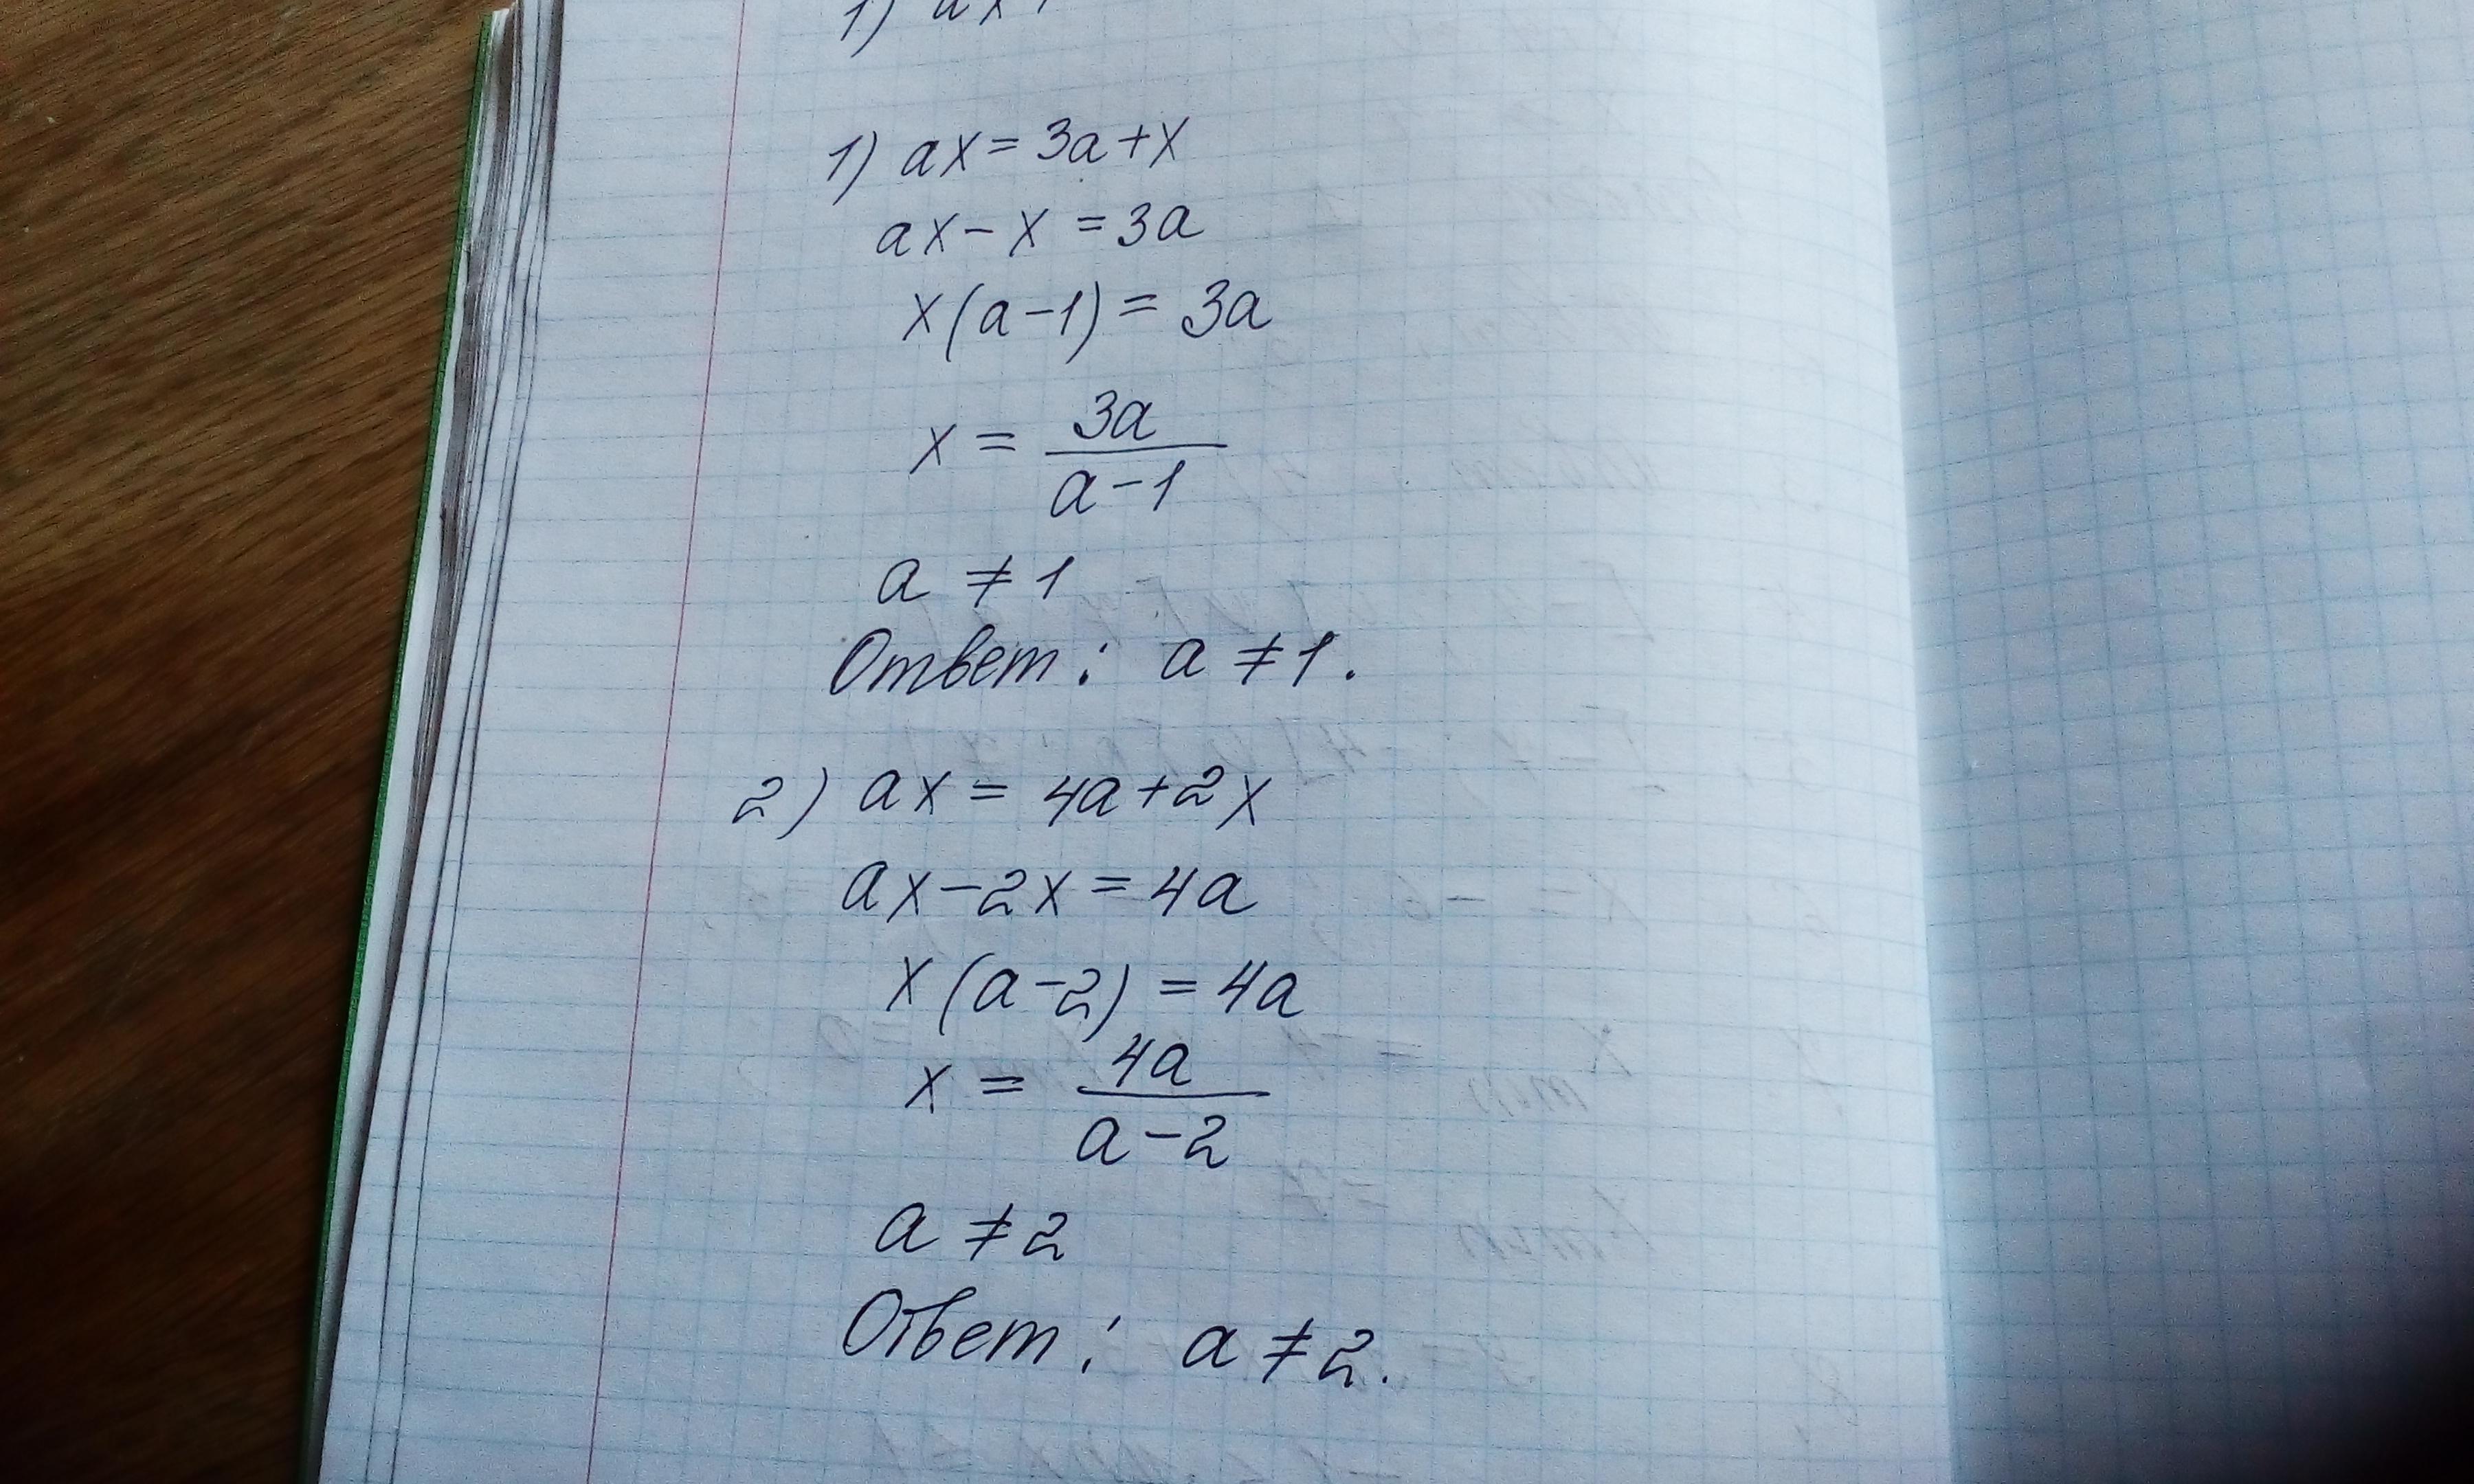 1) ax
1) ax = 3a + x
ax - x = 3a
x(a-1) = 3a
x = 3a
a-1
a ≠ 1
Ответ: a ≠ 1.
2) ax = 4a + 2x
ax - 2x = 4a
x(a-2) = 4a
x = 4a
a-2
a ≠ 2
Ответ: a ≠ 2.